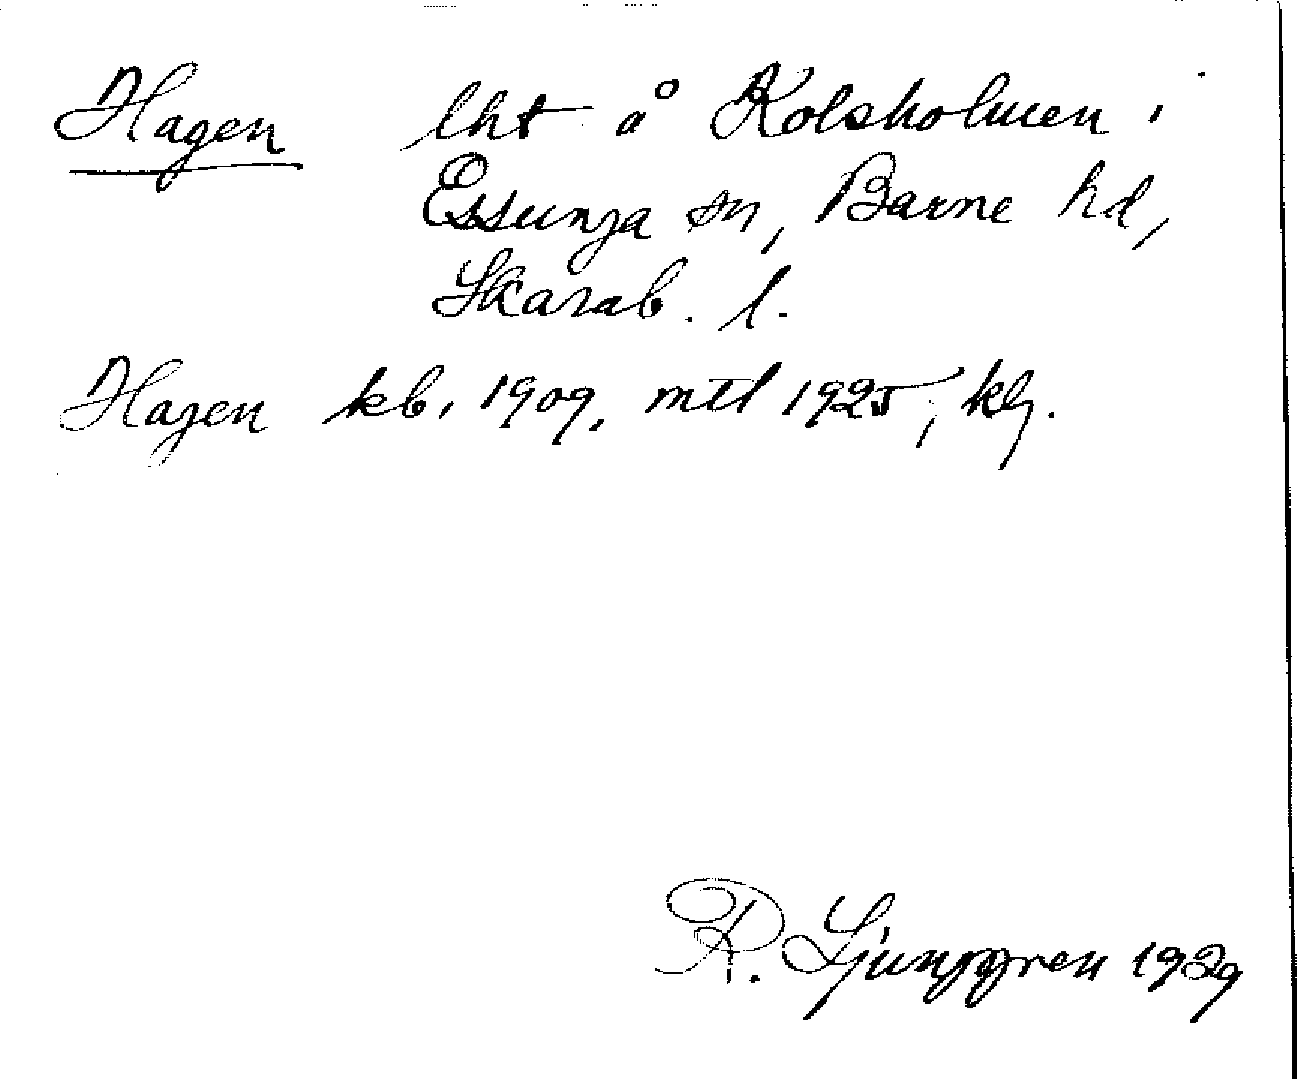 Hagen lht å Kolsholmen i
Essunga sn, Barne hd,
Skarab. l.
Hagen kb. 1909, mtl 1925, klg.
R. Ljunggren 1929